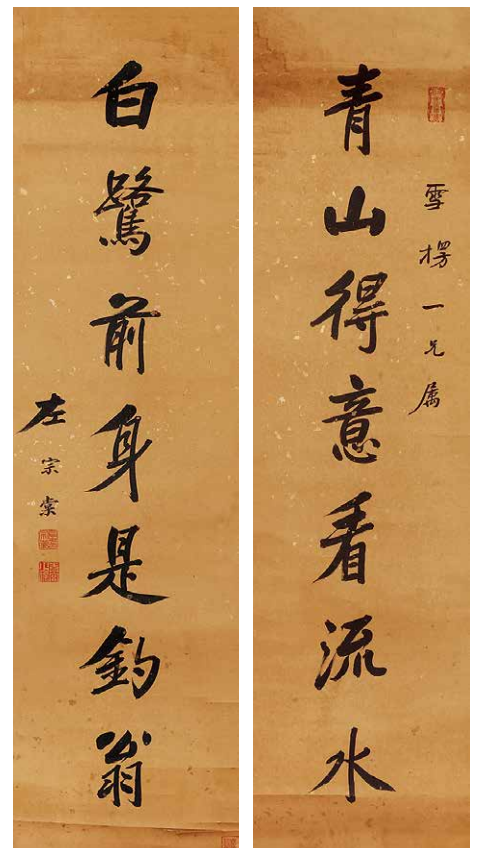 青山得意看流水
雪楞一兄属
白鷺前身是釣翁
左宗棠